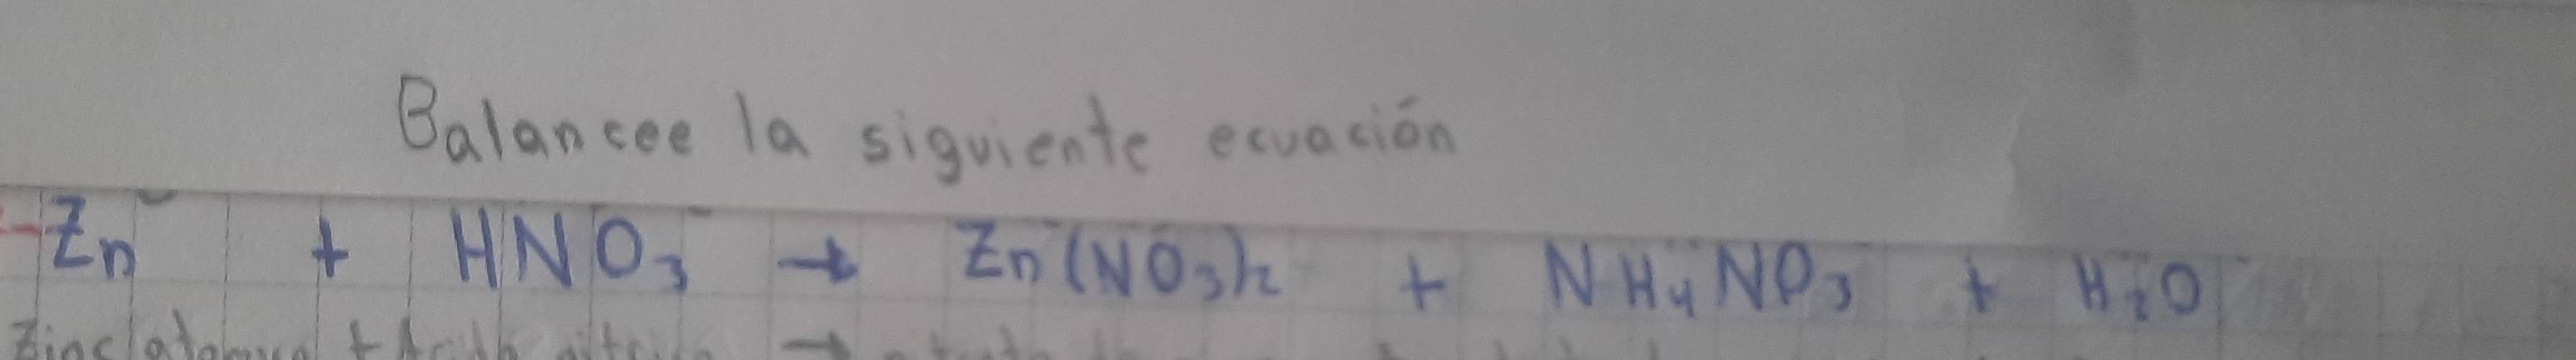 Balancee la siguiente ecuación
Zn + HNO₃ → Zn(NO₃)₂ + NH₄NO₃ + H₂O
+ →